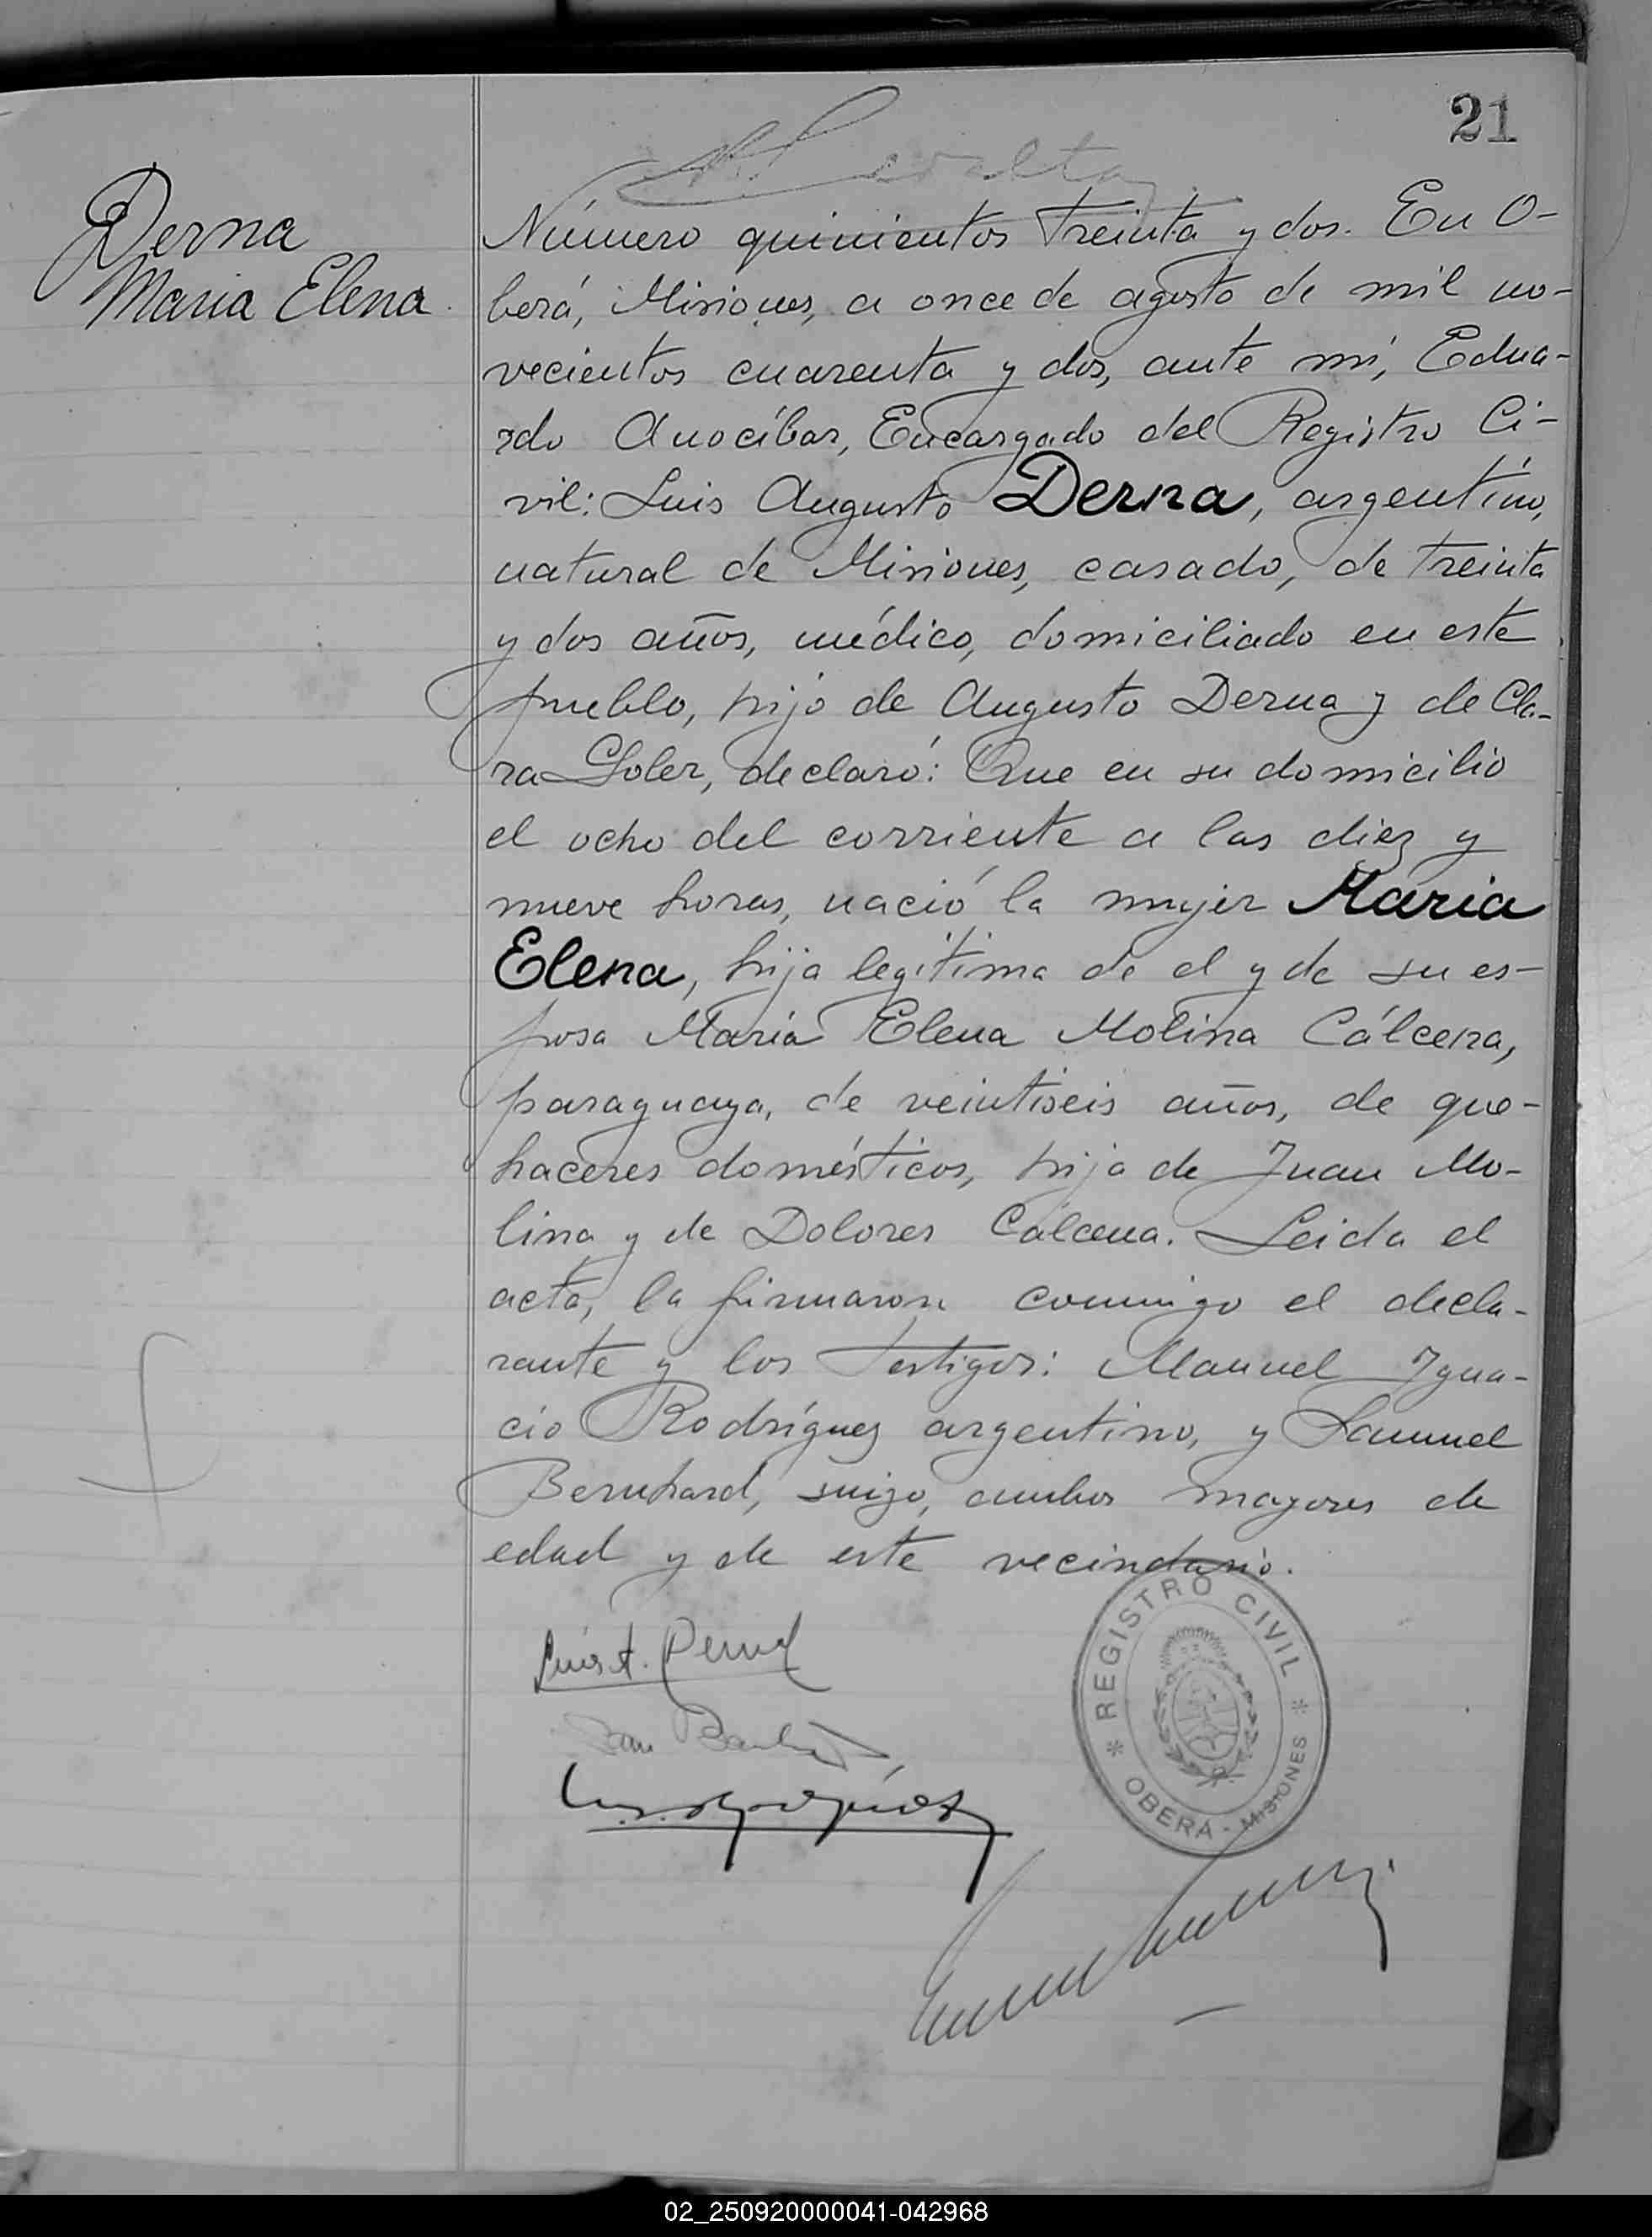 21
Derna
Maria Elena
Número quinientos treinta y dos. En O-
berá, Misiones, a once de agosto de mil no-
vecientos cuarenta y dos, ante mí, Edua-
rdo Anocíbar, Encargado del Registro Ci-
vil: Luis Augusto Derna, argentino,
natural de Misiones, casado, de treinta
y dos años, médico, domiciliado en este
pueblo, hijo de Augusto Derna y de Cla-
ra Soler, declaró: Que en su domicilio
el ocho del corriente a las diez y
nueve horas, nació la mujer María
Elena, hija legítima de el y de su es-
posa María Elena Molina Cálcena,
paraguaya, de veintiseis años, de que-
haceres domésticos, hija de Juan Mo-
lina y de Dolores Cálcena. Leida el
acta, la firmaron conmigo el decla-
rante y los testigos: Manuel Igna-
cio Rodríguez argentino, y Samuel
Bernhard, suizo, ambos mayores de
edad y de este vecindario.
Luis A. Derna
REGISTRO CIVIL
* OBERA - MISIONES *
02_250920000041-042968